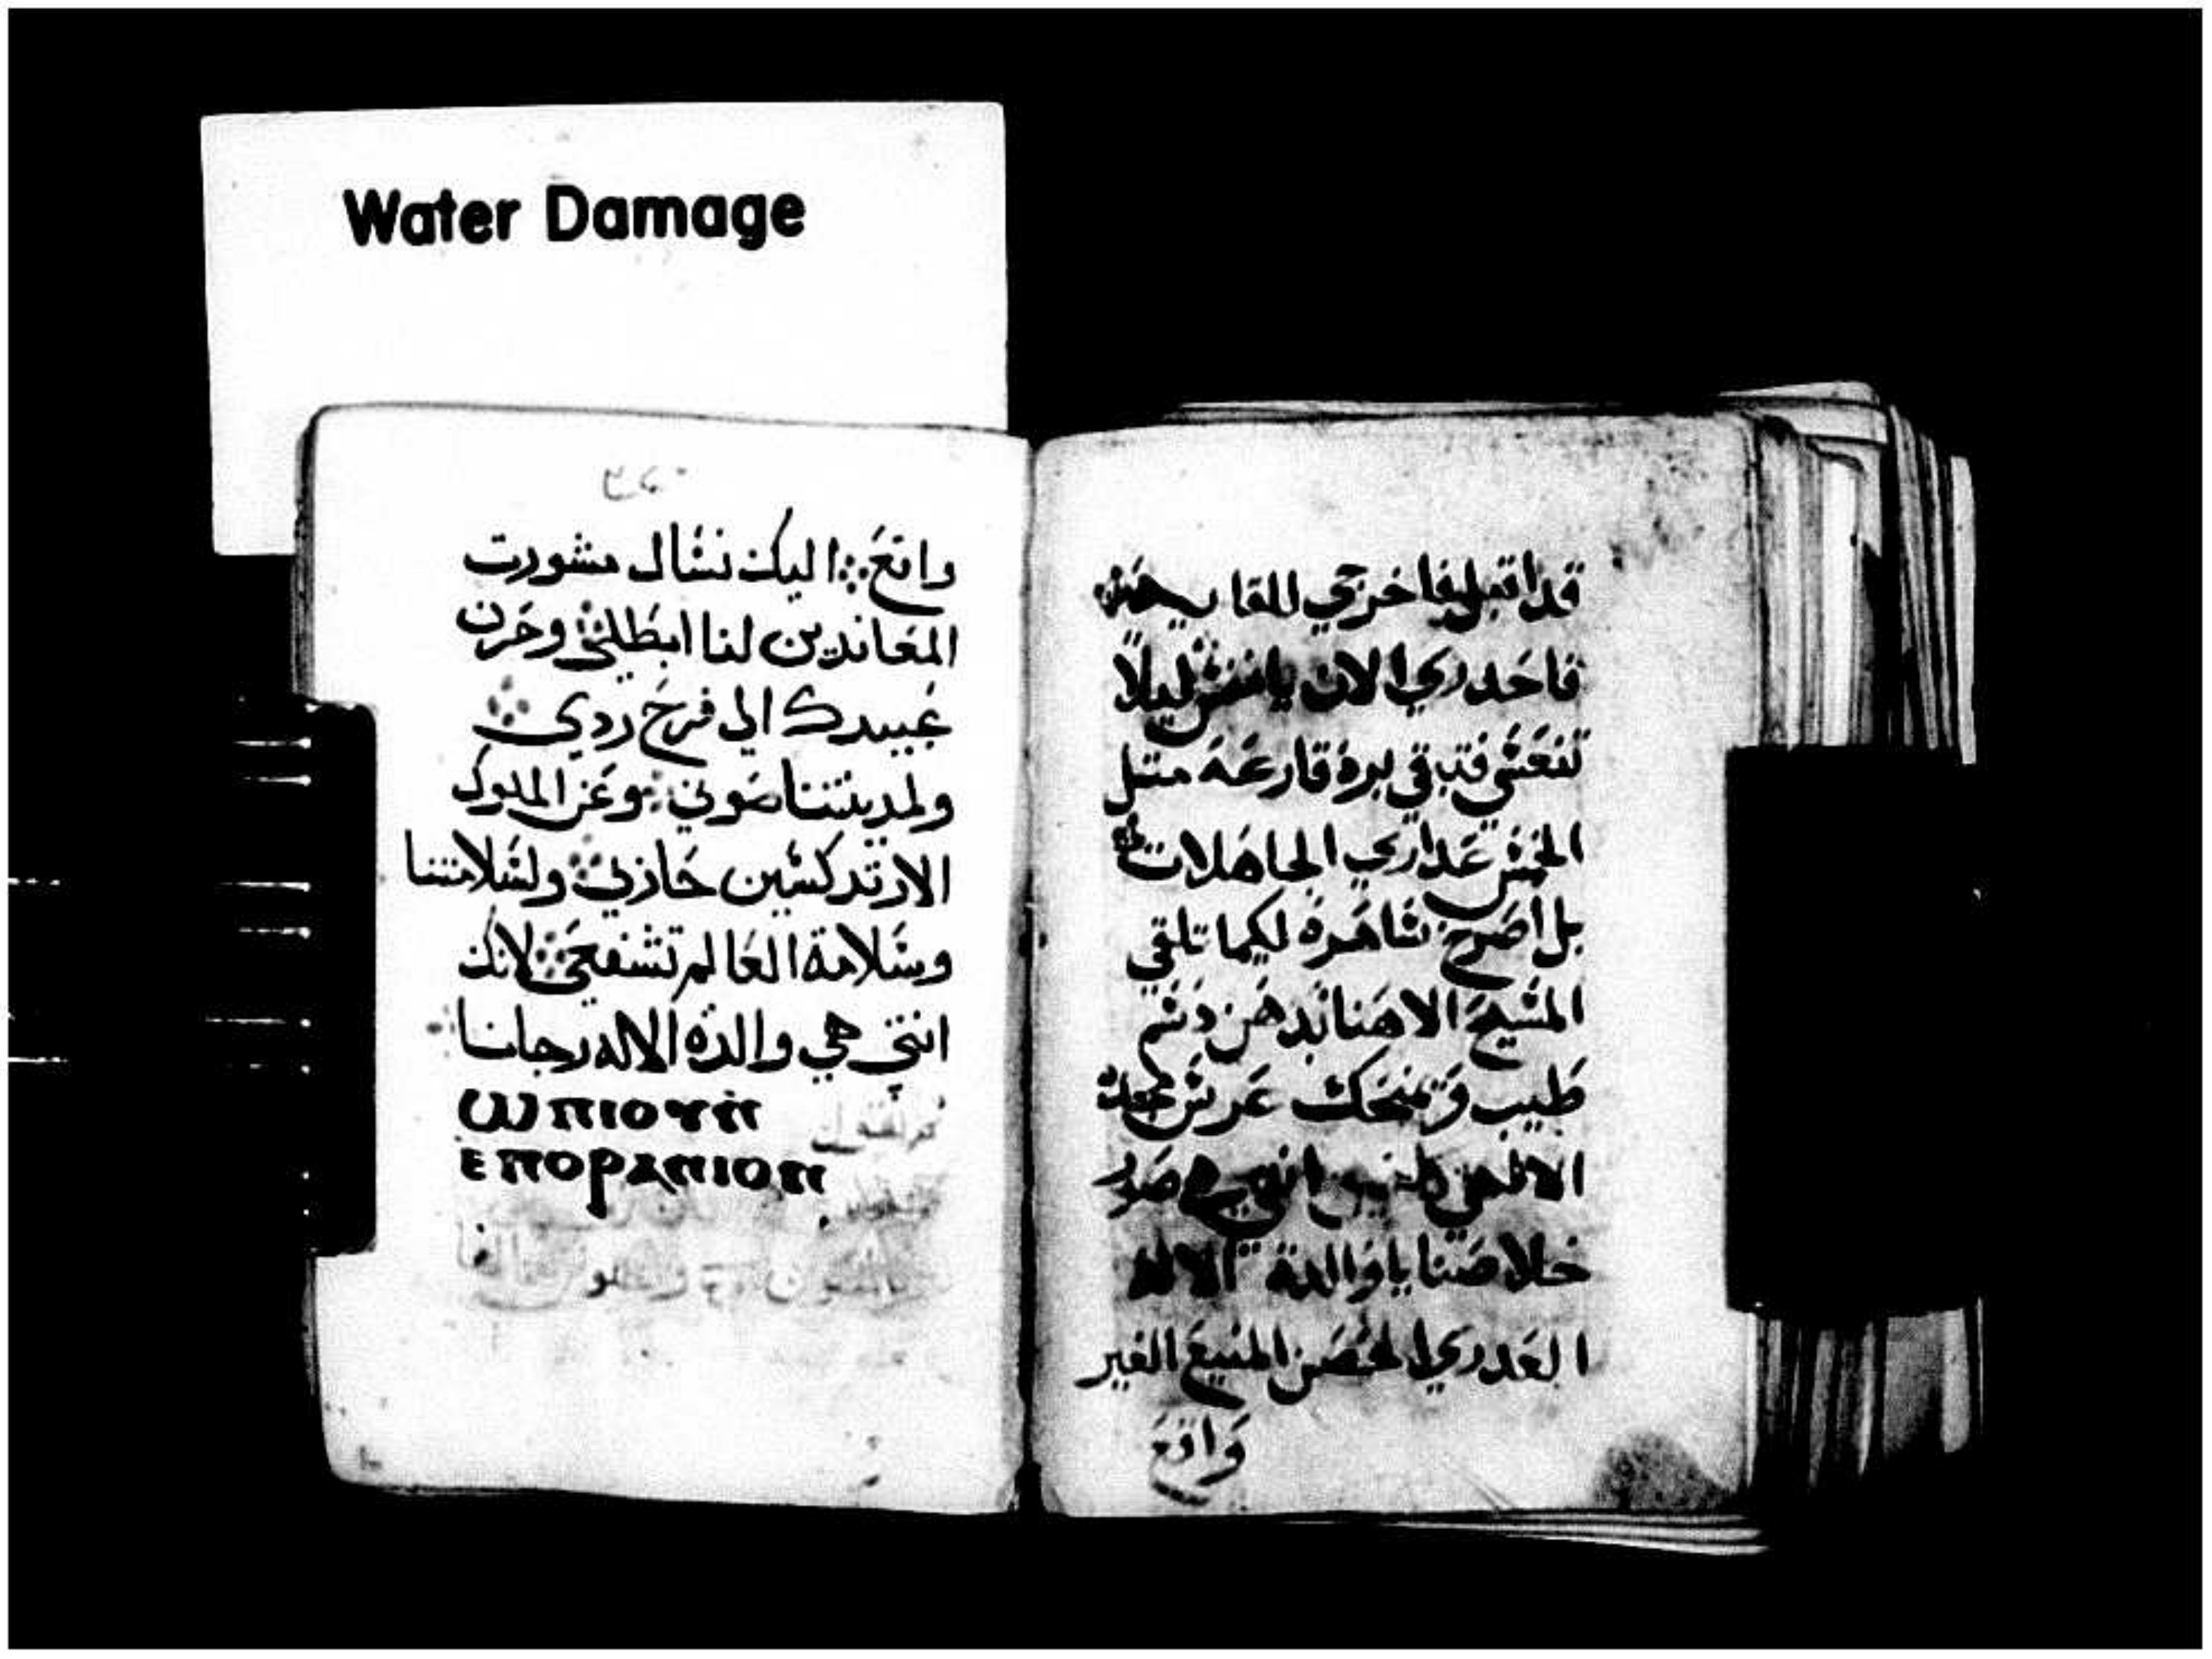 Water Damage
قد اقبل فاخرجي للقا
فاحدري الان يا نفس ليلا
تنعسي فتبقي بره قارعه متل
الخمس عداري الجاهلات
بل اصرخي شاهره لكيما تلقي
المسيح الاهنا بدهن دسم
طيب ويمنحك عرس مجده
الالاهي انتي هي صور
خلاصنا يا والدة الاله
العدري الحصن المنيع الغير
واقع
٢٤٠
واقع اليك نسال مشورت
المعاندين لنا ابطلي وحزن
عبيدك الي فرح ردي
ولمدينتنا صوني وعن الملوك
الارتدكسين حازبي ولسلامتنا
وسلامة العالم تشفعي لانك
انتي هي والدة الاله رجانا
ثم تقول
ⲱⲡⲓⲟⲩⲛ
ⲉⲡⲟⲣⲁⲛⲓⲟⲛ